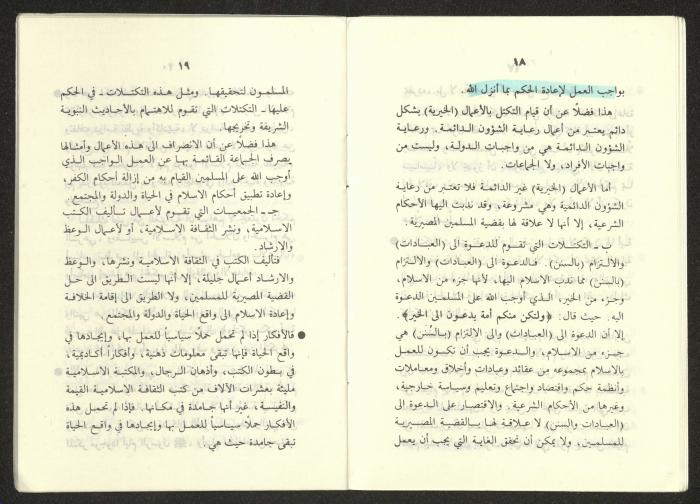 ١٨
بواجب العمل لإعادة الحكم بما أنزل الله .
هذا فضلًا عن أن قيام التكتل بالأعمال (الخيرية) بشكل
دائم يعتبر من أعمال رعاية الشؤون الدائمة . ورعاية
الشؤون الدائمة هي من واجبات الدولة، وليست من
واجبات الأفراد، ولا الجماعات.
أما الأعمال (الخيرية) غير الدائمة فلا تعتبر من رعاية
الشؤون الدائمية وهي مشروعة، وقد ندبت اليها الأحكام
الشرعية، إلا أنها لا علاقة لها بقضية المسلمين المصيرية .
ب ـ التكتلات التي تقوم للدعوة الى (العبادات)
والالتزام (بالسنن) . فالدعوة الى (العبادات) والالتزام
(بالسنن) مما ندب الاسلام اليها، لأنها جزء من الاسلام،
وجزء من الخير. الذي أوجب الله على المسلمين الدعوة
اليه. حيث قال: ﴿ولتكن منكم أمة يدعون الى الخير﴾.
إلا أن الدعوة الى (العبادات) والى الالتزام (بالسنن) هي
جزء من الاسلام، والدعوة يجب أن تكون للعمل
بالاسلام بمجموعه من عقائد وعبادات وأخلاق ومعاملات
وأنظمة حكم واقتصاد واجتماع وتعليم وسياسة خارجية،
وغيرها من الأحكام الشرعية . والاقتصار على الدعوة الى
(العبادات والسنن) لا علاقة لها بالقضية المصيرية
للمسلمين، ولا يمكن أن تحقق الغاية التي يجب أن يعمل
١٩
المسلمون لتحقيقها. ومثل هذه التكتلات ـ في الحكم
عليها ـ التكتلات التي تقوم للاهتمام بالأحاديث النبوية
الشريفة وتخريجها.
هذا فضلًا عن أن الانصراف الى هذه الأعمال وأمثالها
يصرف الجماعة القائمة بها عن العمل الواجب الذي
أوجب الله على المسلمين القيام به من إزالة أحكام الكفر،
وإعادة تطبيق أحكام الاسلام في الحياة والدولة والمجتمع .
جـ ـ الجمعيات التي تقوم لأعمال تأليف الكتب
الاسلامية، ونشر الثقافة الاسلامية، أو لأعمال الوعظ
والارشاد.
فتأليف الكتب في الثقافة الاسلامية ونشرها، والوعظ
والارشاد أعمال جليلة، إلا أنها ليست الطريق الى حل
القضية المصيرية للمسلمين، ولا الطريق الى إقامة الخلافة
وإعادة الاسلام الى واقع الحياة والدولة والمجتمع .
فالأفكار إذا لم تحمل حملًا سياسياً للعمل بها، وإيجادها في
واقع الحياة فإنها تبقى معلومات ذهنية، وأفكاراً أكاديمية،
في بطون الكتب، وأذهان الرجال، والمكتبة الاسلامية
مليئة بعشرات الآلاف من كتب الثقافة الاسلامية القيمة
والنفيسة، غير أنها جامدة في مكانها. فإذا لم تحمل هذه
الأفكار حملًا سياسياً للعمل بها وإيجادها في واقع الحياة
تبقى جامدة حيث هي .